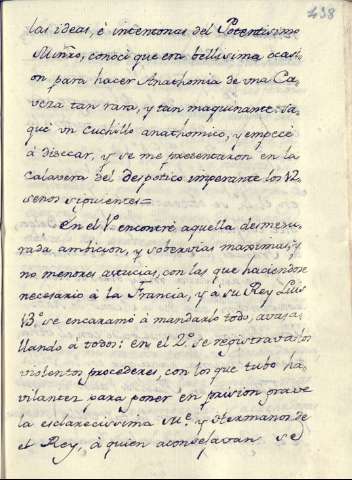 438
las ideas, è intentonas del Potentissimo
Minro, conocì que era bellissima ocasi-
on para hacer Anathomia de una Ca-
veza tan rara, y tan maquinante: Sa-
què un Cuchillo anathomico, y empecè
à disecar, y se me presentaron en la
Calavera del despotico imperante los 12
senos siguientes=
En el 1º encontrè aquella desmesu-
rada ambicion, y sobervias maximas, y
no menores astucias, con las que haciendose
necesario à la Francia, y à su Rey Luis
13º se encaramò à mandarlo todo, avasa-
llando à todos: en el 2º se registravan los
violentos procederes, con los que tubo ha-
vilantez para poner en prision grave
la esclarecissima Me. y Hermanos de
el Rey, à quien aconsejavan se